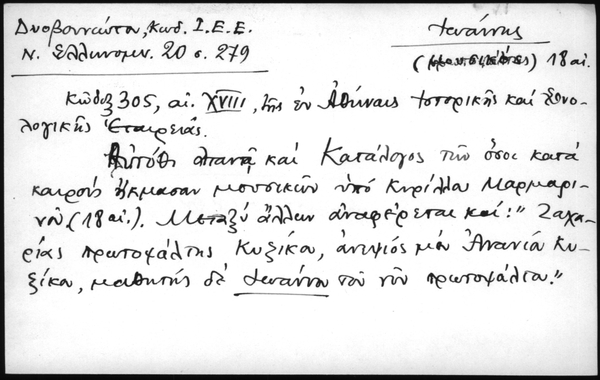 Δυοβουνιώτου, Κωδ. Ι.Ε.Ε.
Ν. Ελληνομν. 20 σ. 279
Ἰωάννης
(μουσικός) 18 αἰ.
Κῶδιξ 305, αἰ. XVIII, τῆς ἐν Ἀθήναις Ἱστορικῆς καὶ Ἐθνο-
λογικῆς Ἑταιρείας.
Αὐτόθι ἀπαντᾷ καὶ Κατάλογος τῶν ὅσοι κατὰ
καιροὺς ἤκμασαν μουσικῶν ὑπὸ Κυρίλλου Μαρμαρι-
νοῦ (18 αἰ.). Μεταξὺ ἄλλων ἀναφέρεται καί: "Ζαχα-
ρίας πρωτοψάλτης Κυζίκου, ἀνεψιὸς μὲν Ἀνανία Κυ-
ζίκου, μαθητὴς δὲ Ἰωάννου τοῦ νῦν πρωτοψάλτου."